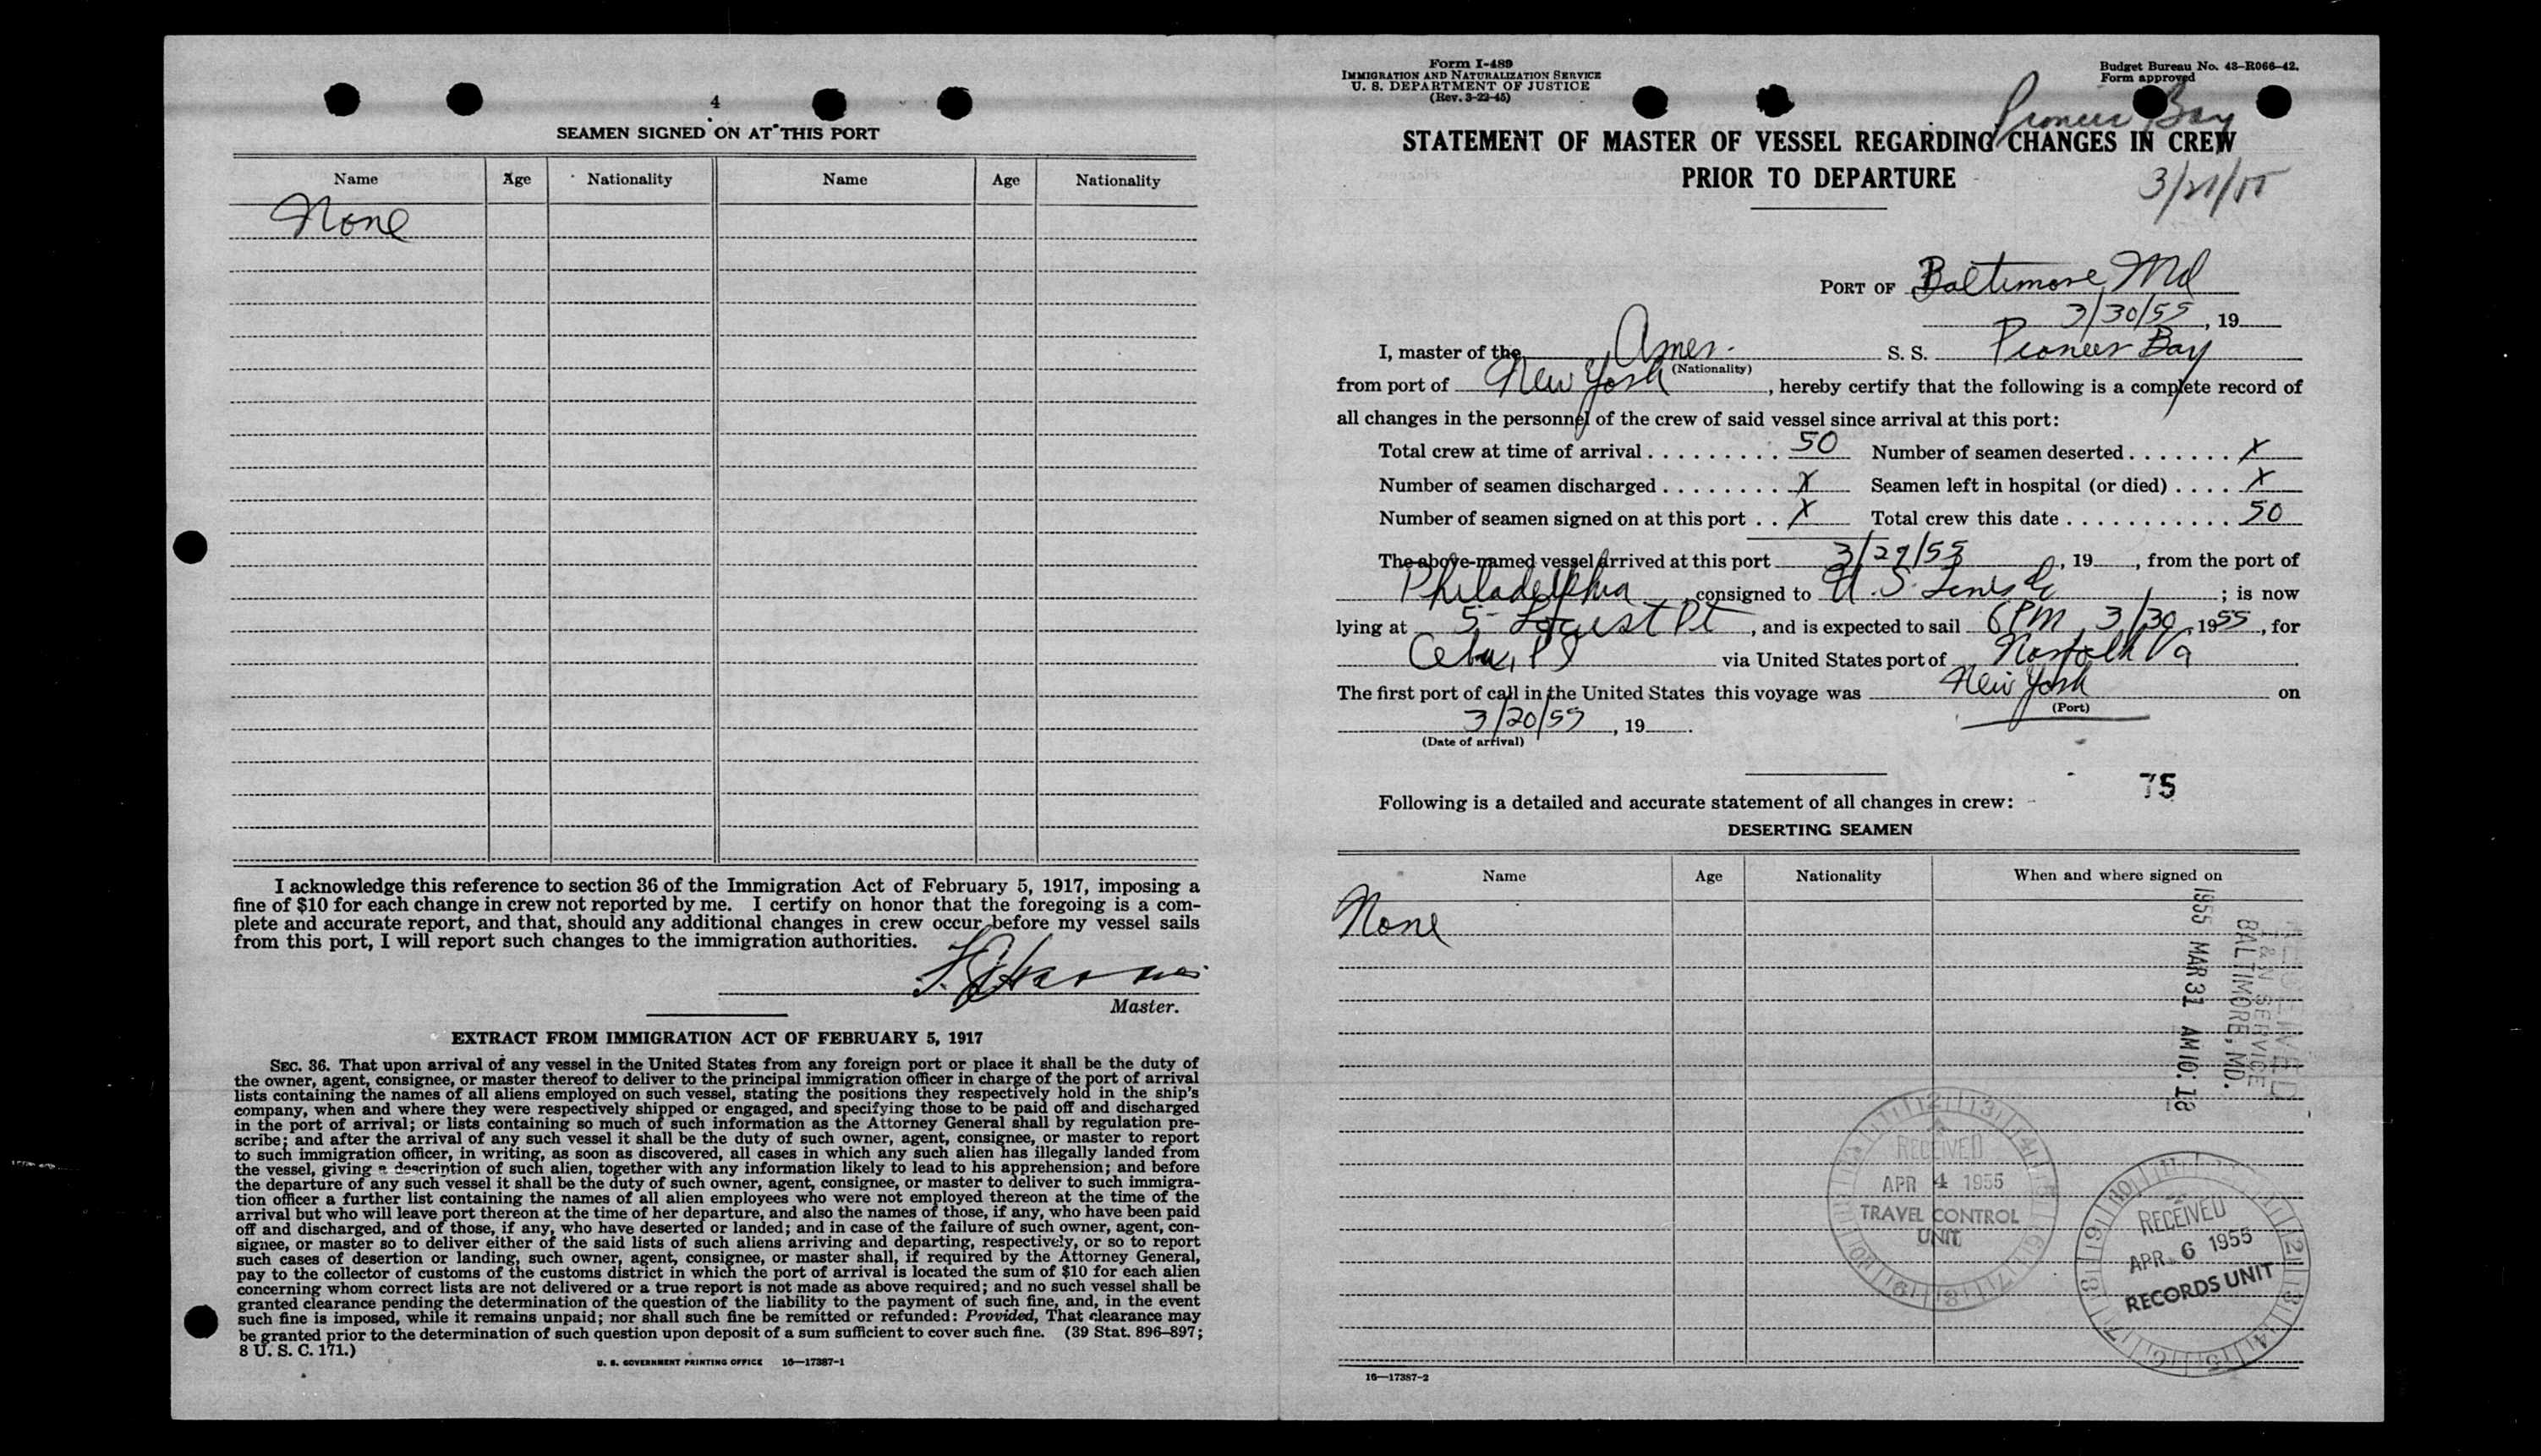 4
SEAMEN SIGNED ON AT THIS PORT
Name Age Nationality Name Age Nationality
None
I acknowledge this reference to section 36 of the Immigration Act of February 5, 1917, imposing a
fine of $10 for each change in crew not reported by me. I certify on honor that the foregoing is a com-
plete and accurate report, and that, should any additional changes in crew occur before my vessel sails
from this port, I will report such changes to the immigration authorities.
Master.
EXTRACT FROM IMMIGRATION ACT OF FEBRUARY 5, 1917
SEC. 36. That upon arrival of any vessel in the United States from any foreign port or place it shall be the duty of
the owner, agent, consignee, or master thereof to deliver to the principal immigration officer in charge of the port of arrival
lists containing the names of all aliens employed on such vessel, stating the positions they respectively hold in the ship's
company, when and where they were respectively shipped or engaged, and specifying those to be paid off and discharged
in the port of arrival; or lists containing so much of such information as the Attorney General shall by regulation pre-
scribe; and after the arrival of any such vessel it shall be the duty of such owner, agent, consignee, or master to report
to such immigration officer, in writing, as soon as discovered, all cases in which any such alien has illegally landed from
the vessel, giving a description of such alien, together with any information likely to lead to his apprehension; and before
the departure of any such vessel it shall be the duty of such owner, agent, consignee, or master to deliver to such immigra-
tion officer a further list containing the names of all alien employees who were not employed thereon at the time of the
arrival but who will leave port thereon at the time of her departure, and also the names of those, if any, who have been paid
off and discharged, and of those, if any, who have deserted or landed; and in case of the failure of such owner, agent, con-
signee, or master so to deliver either of the said lists of such aliens arriving and departing, respectively, or so to report
such cases of desertion or landing, such owner, agent, consignee, or master shall, if required by the Attorney General,
pay to the collector of customs of the customs district in which the port of arrival is located the sum of $10 for each alien
concerning whom correct lists are not delivered or a true report is not made as above required; and no such vessel shall be
granted clearance pending the determination of the question of the liability to the payment of such fine, and, in the event
such fine is imposed, while it remains unpaid; nor shall such fine be remitted or refunded: Provided, That clearance may
be granted prior to the determination of such question upon deposit of a sum sufficient to cover such fine. (39 Stat. 896–897;
8 U. S. C. 171.)
U. S. GOVERNMENT PRINTING OFFICE 16—17387-1
Form I-489
IMMIGRATION AND NATURALIZATION SERVICE
U. S. DEPARTMENT OF JUSTICE
(Rev. 3-22-45)
Budget Bureau No. 43-R066-42.
Form approved
Pioneer Bay
STATEMENT OF MASTER OF VESSEL REGARDING CHANGES IN CREW
PRIOR TO DEPARTURE
PORT OF Baltimore, Md
3/30/55, 19
I, master of the Amer. S. S. Pioneer Bay
(Nationality)
from port of New York, hereby certify that the following is a complete record of
all changes in the personnel of the crew of said vessel since arrival at this port:
Total crew at time of arrival 50 Number of seamen deserted X
Number of seamen discharged X Seamen left in hospital (or died) X
Number of seamen signed on at this port X Total crew this date 50
The above-named vessel arrived at this port 3/29/55, 19, from the port of
Philadelphia consigned to U. S. Lines Co; is now
lying at 5 Locust Pt, and is expected to sail 6 PM 3/30, 1955, for
Cebu, PI via United States port of Norfolk Va
The first port of call in the United States this voyage was New York on
(Port)
3/20/55, 19.
(Date of arrival)
75
Following is a detailed and accurate statement of all changes in crew:
DESERTING SEAMEN
Name Age Nationality When and where signed on
None
RECEIVED
I & N SERVICE
BALTIMORE, MD.
1955 MAR 31 AM 10: 18
RECEIVED
APR 4 1955
TRAVEL CONTROL
UNIT
RECEIVED
APR 6 1955
RECORDS UNIT
16—17387-2